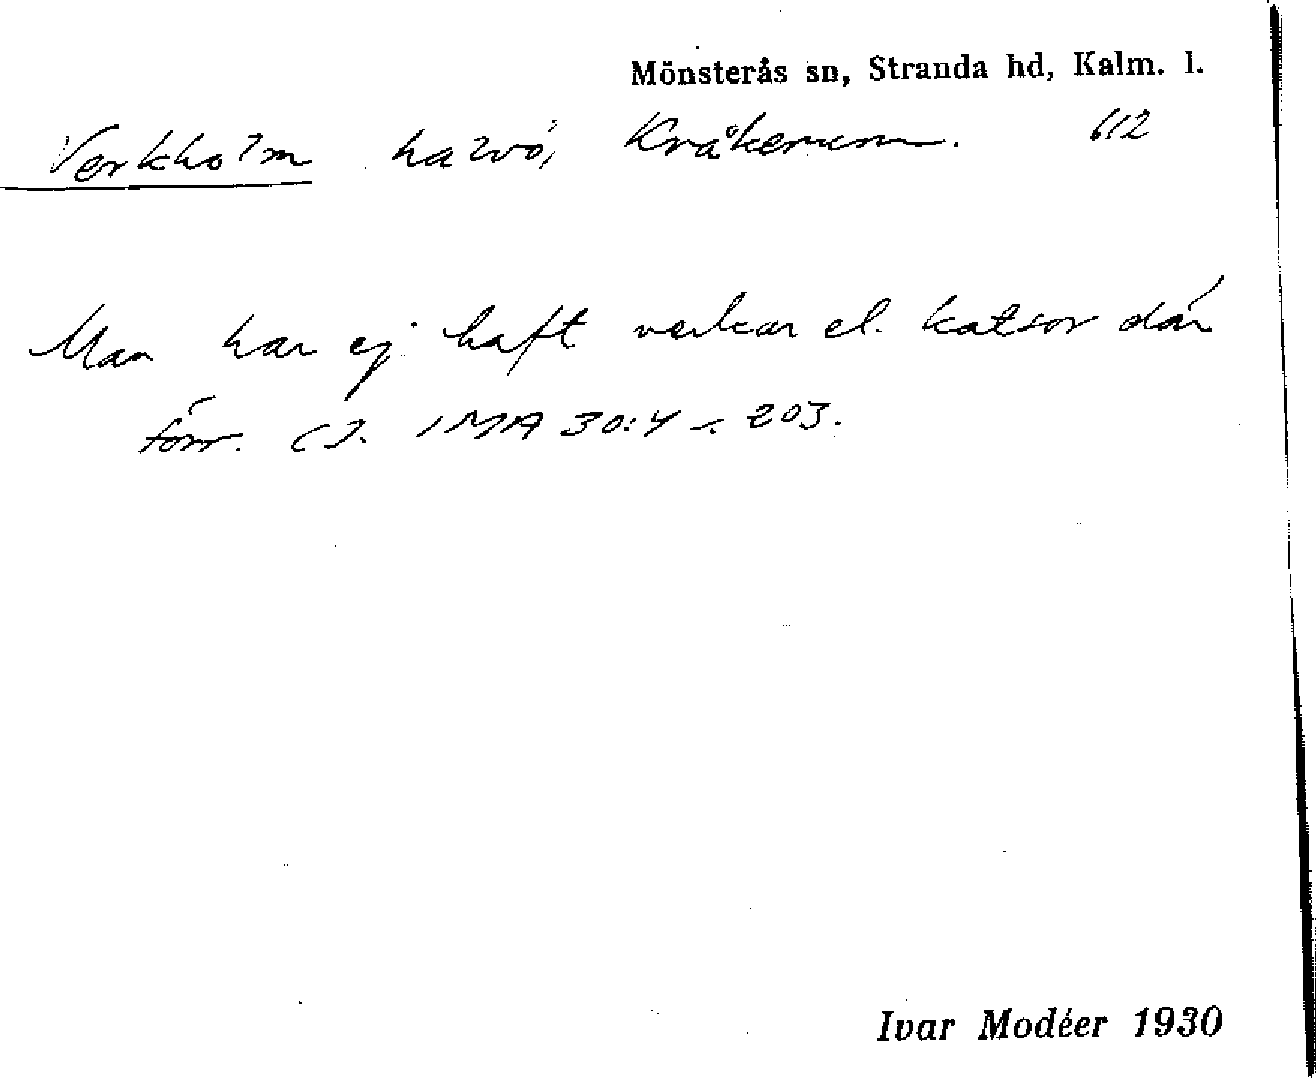 Mönsterås sn, Stranda hd, Kalm. l.
Verkholm halvö, Kråkerum. 612
Man har ej haft verkar el. katsor där
förr. CJ. IMA 30:4 s. 203.
Ivar Modéer 1930